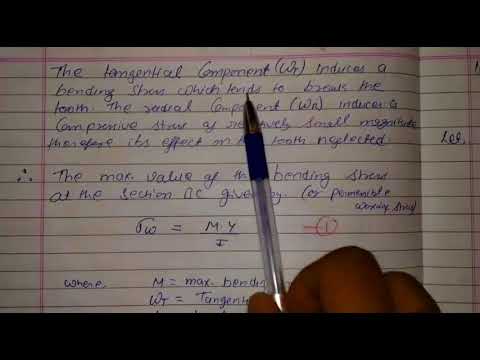 The tangential Component (WT) induces a
bending stress which tends to break the
tooth. The radial Component (WR) induces a
Compressive stress of relatively small magnitude
therefore its effect on the tooth neglected.
Let,
∴ The max. value of the bending stress
at the section BC given by. (or permissible
working stress)
σw = M.Y / I — ①
where, M = max. bending
WT = Tangent